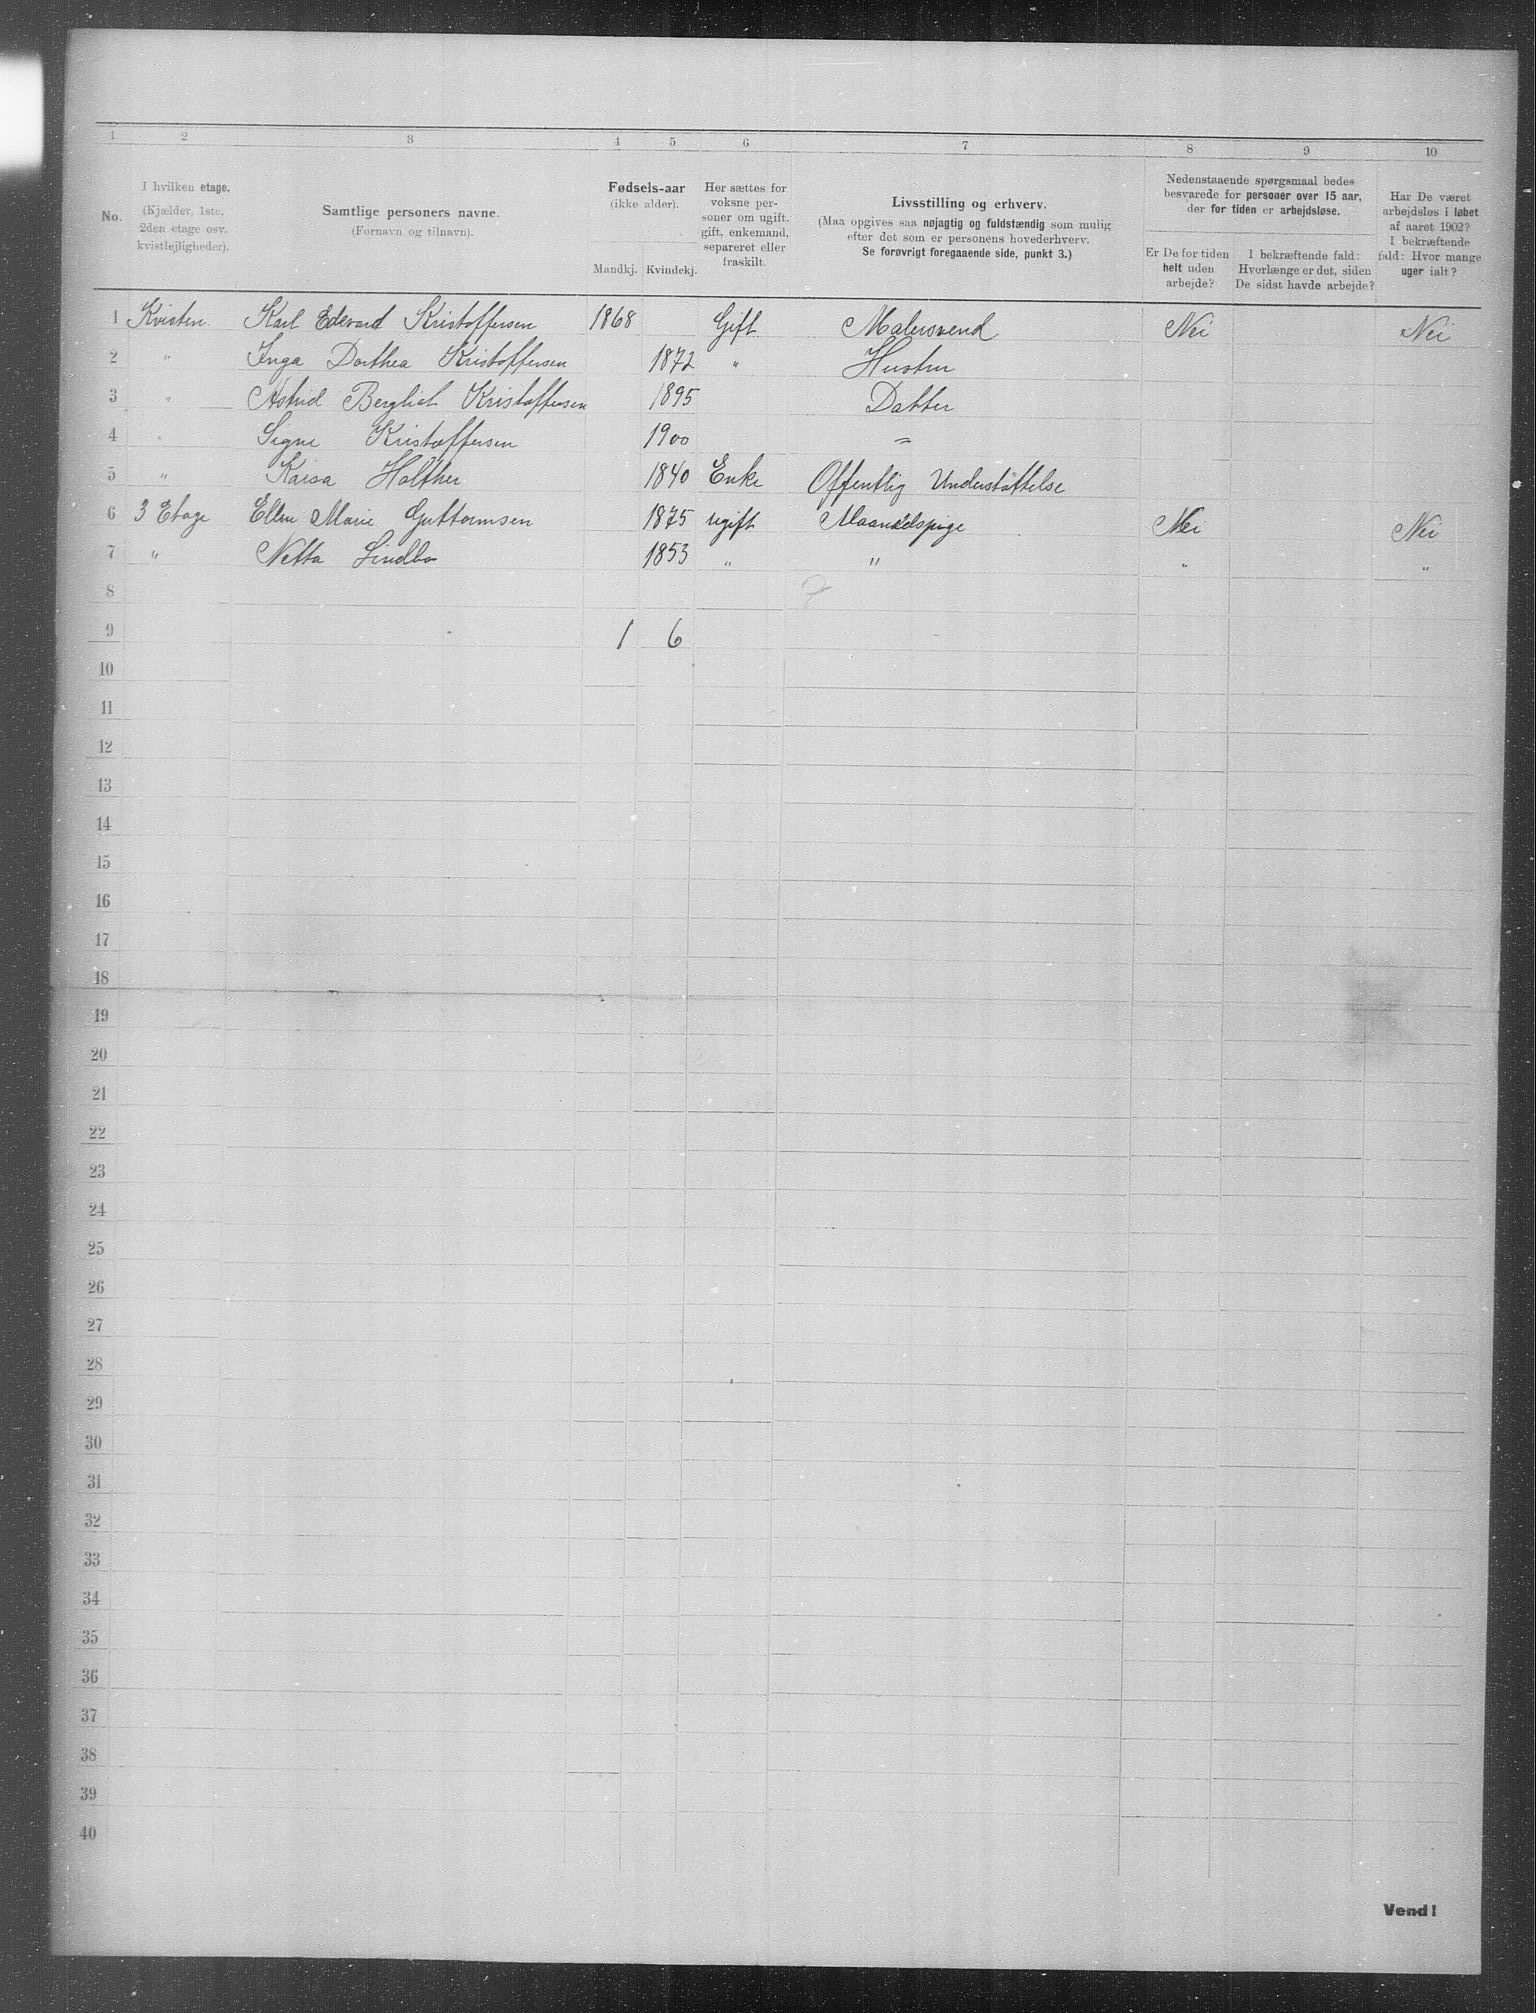 1 2 3 4 5 6 7 8 9 10
No.
I hvilken etage.
(Kjælder, 1ste,
2den etage osv.
kvistlejligheder).
Samtlige personers navne.
(Fornavn og tilnavn).
Fødsels-aar
(ikke alder).
Mandkj. Kvindekj.
Her sættes for
voksne per-
soner om ugift,
gift, enkemand,
separeret eller
fraskilt.
Livsstilling og erhverv.
(Maa opgives saa nøjagtig og fuldstændig som mulig
efter det som er personens hovederhverv.
Se forøvrigt foregaaende side, punkt 3.)
Nedenstaaende spørgsmaal bedes
besvarede for personer over 15 aar,
der for tiden er arbejdsløse.
Er De for tiden
helt uden
arbejde?
I bekræftende fald:
Hvorlænge er det, siden
De sidst havde arbejde?
Har De været
arbejdsløs i løbet
af aaret 1902?
I bekræftende
fald: Hvor mange
uger ialt?
1 Kvisten Karl Edevard Kristoffersen 1868 Gift Malersvend Nei Nei
2 " Inga Dorthea Kristoffersen 1872 " Hustru
3 " Astrid Bergliot Kristoffersen 1895 Datter
4 " Signe Kristoffersen 1900 "
5 " Kaisa Holther 1840 Enke Offentlig Understöttelse
6 3 Etage Ellen Marie Guttormsen 1875 ugift Maanedspige Nei Nei
7 " Netta Lindbo 1853 " " " "
8 7
9 1 6
10
11
12
13
14
15
16
17
18
19
20
21
22
23
24
25
26
27
28
29
30
31
32
33
34
35
36
37
38
39
40
Vend!